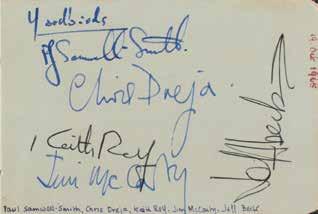 Yardbirds
P Samwell-Smith.
Chris Dreja.
Keith Relf
Jim McCarty
Jeff Beck
Paul Samwell-Smith, Chris Dreja, Keith Relf, Jim McCarty, Jeff Beck